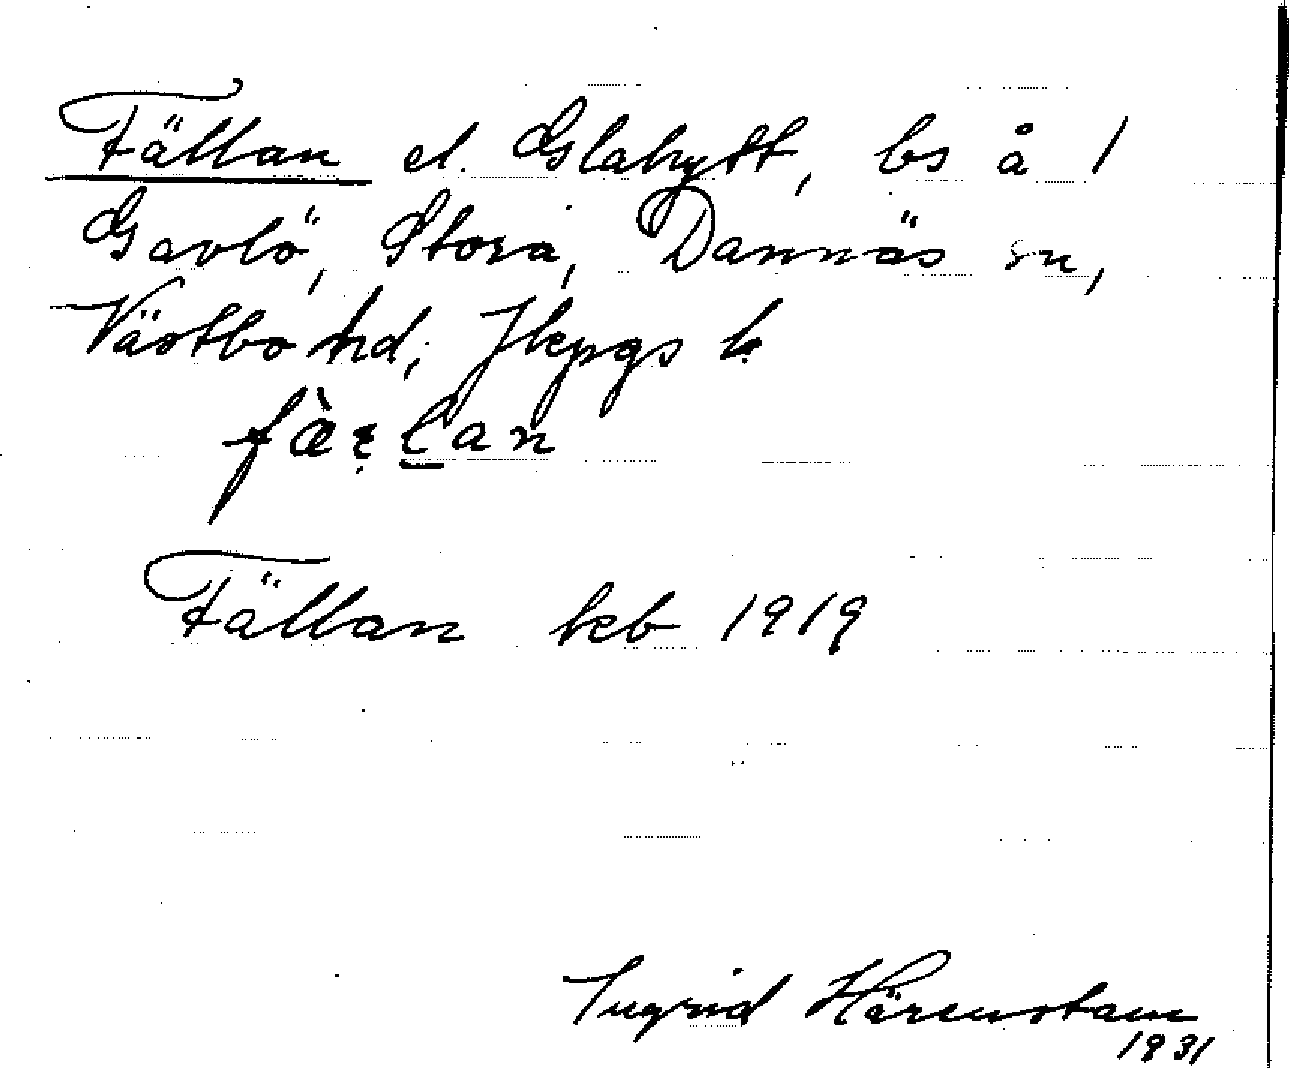 Fällan el. Glahytt, bs å 1
Gavlö, Stora, Dannäs sn,
Västbo hd, Jkpgs l.
Fällan keb 1919
Ingrid Härenstam
1931